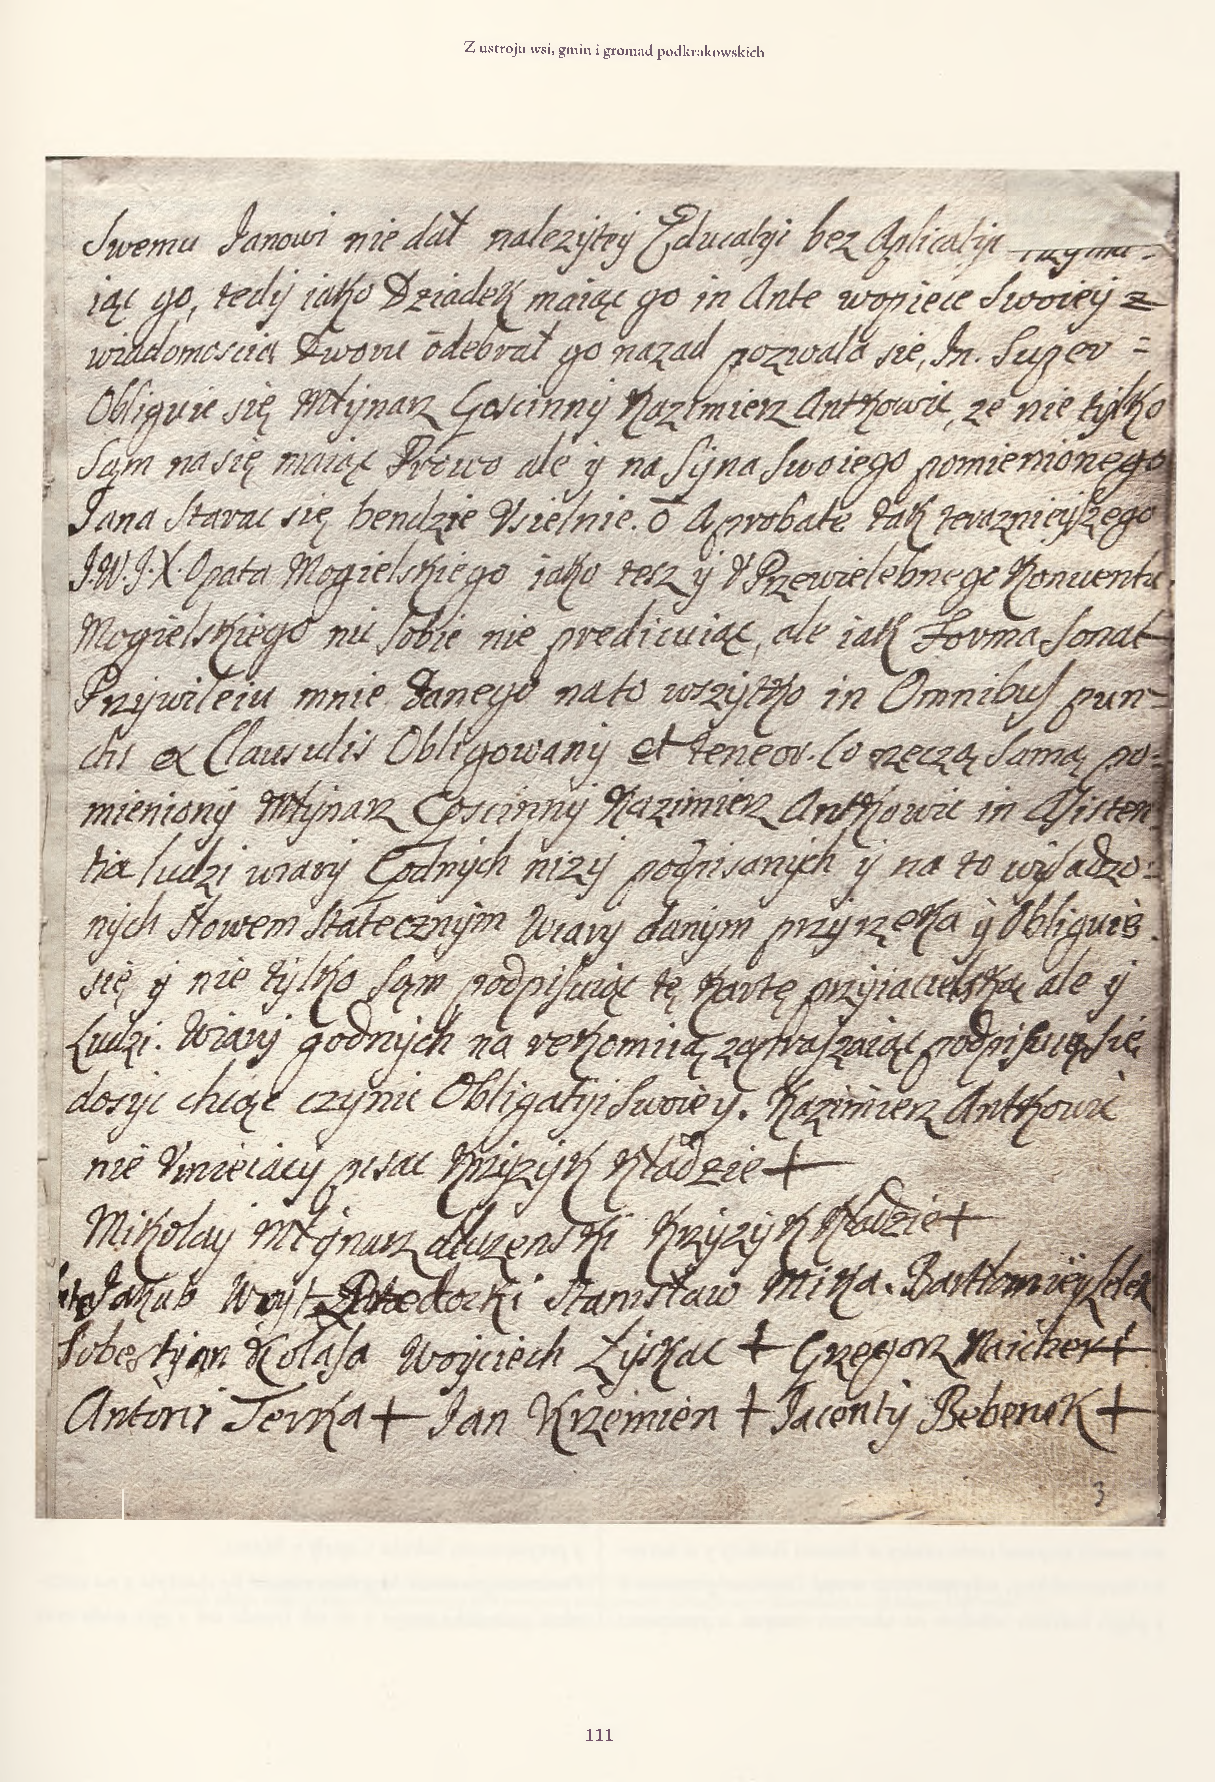 Z ustroju wsi, gmin i gromad podkrakowskich
Swemu Janowi nie dał nalezÿtey Educatÿi bez Aplicatÿi
iąc go, tedÿ iako Dziadek maiąc go in Ante wopiece Swoieÿ z
wiadomoscią Dworu odebrał go nazad pozwala sie, In Super =
Obliguie się Młÿnarz Goscinnÿ Kazimierz Antkowic, ze nie tÿlko
Sąm na się maiąc Prowo ale ÿ na Sÿna Swoiego pomienionego
Jana Starac się bendzie Vsielnie. o Aprobate tak teraznieÿszego
J.W.J.X. Opata Mogielskiego iako tesz ÿ V Przewielebnego Konwentu
Mogielskiego nic Sobie nie predicuiąc, ale iak Forma Sonat
Przÿwileiu mnie danego na to wszÿtko in Omnibus pun=
ctis et Clausulis Obligowanÿ et teneor. Co rzeczą Samą po=
mienionÿ Młÿnarz Goscinnÿ Kazimierz Antkowic in Asisten=
tia ludzi wiarÿ Godnÿch nizÿ podpisanÿch ÿ na to wÿsadzo=
nÿch Słowem Statecznÿm Wiarÿ danÿm przÿrzeka ÿ Obliguie
się ÿ nie tÿlko Sąm podpisuiąc tę kartę przÿiacielską ale ÿ
Ludzi Wiarÿ godnÿch na rekomiią zapraszaiąc podpisuią się
dosÿc chcąc czÿnic Obligatÿi Swoieÿ. Kazimierz Antkowic
nie Vmieiacÿ pisac Krzÿzÿk kładzie +
Mikolaÿ Młÿnarz dłuzenski Krzÿzÿk kładzie +
Jakub Woÿt Stanisław Mika. Bartłomieÿ
Sobestÿan Kolasa Woÿciech Łÿskac + Grzegorz Raicher +
Antoni Terka + Jan Krzemien + Jacentÿ Bebenek +
3
111